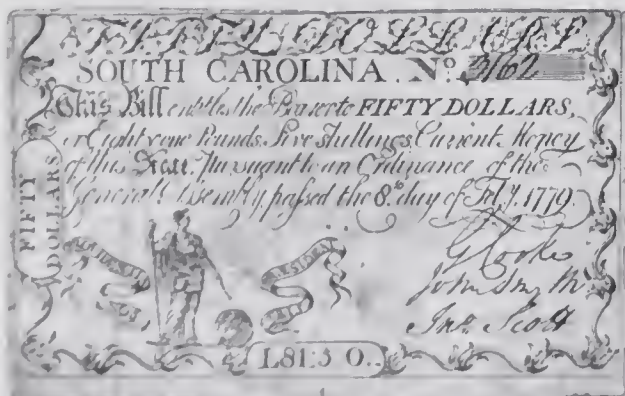 FIFTY DOLLARS
SOUTH CAROLINA. No. 3162
This Bill entitles the Bearer to FIFTY DOLLARS,
or Eighty one Pounds, Five Shillings, Current Money
of this State, Pursuant to an Ordinance of the
General Assembly, passed the 8th day of Feby. 1779.
FIFTY
DOLLARS
John Smyth
Jno. Scott
L81:5 0.